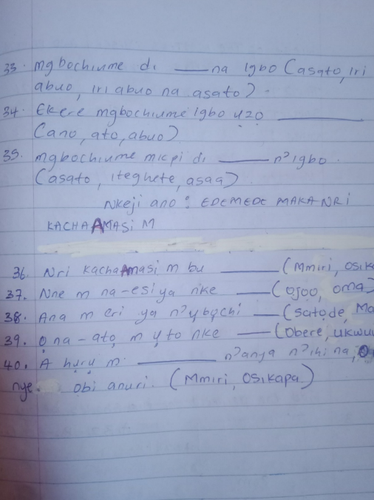 33. Mgbochiume di ___ na Igbo (asato, iri
abuo, iri abuo na asato).
34. Ekere mgbochiume Igbo uzo ___
(ano, ato, abuo)
35. mgbochiume mkpi di ___ n'igbo.
(asato, iteghete, asaa)
Nkeji ano: EDEMEDE MAKA NRI
KACHA AMASI M
36. Nri kacha Amasi m bu ___ (Mmiri, osika
37. Nne m na-esi ya nke ___ (ojoo, oma
38. Ana m eri ya n'ubochi ___ (satode, Mo
39. O na-ato m uto nke ___ (Obere, ukwu
40. A huru m ___ n'anya n'ihi na, O
nye obi anuri. (Mmiri, Osikapa)